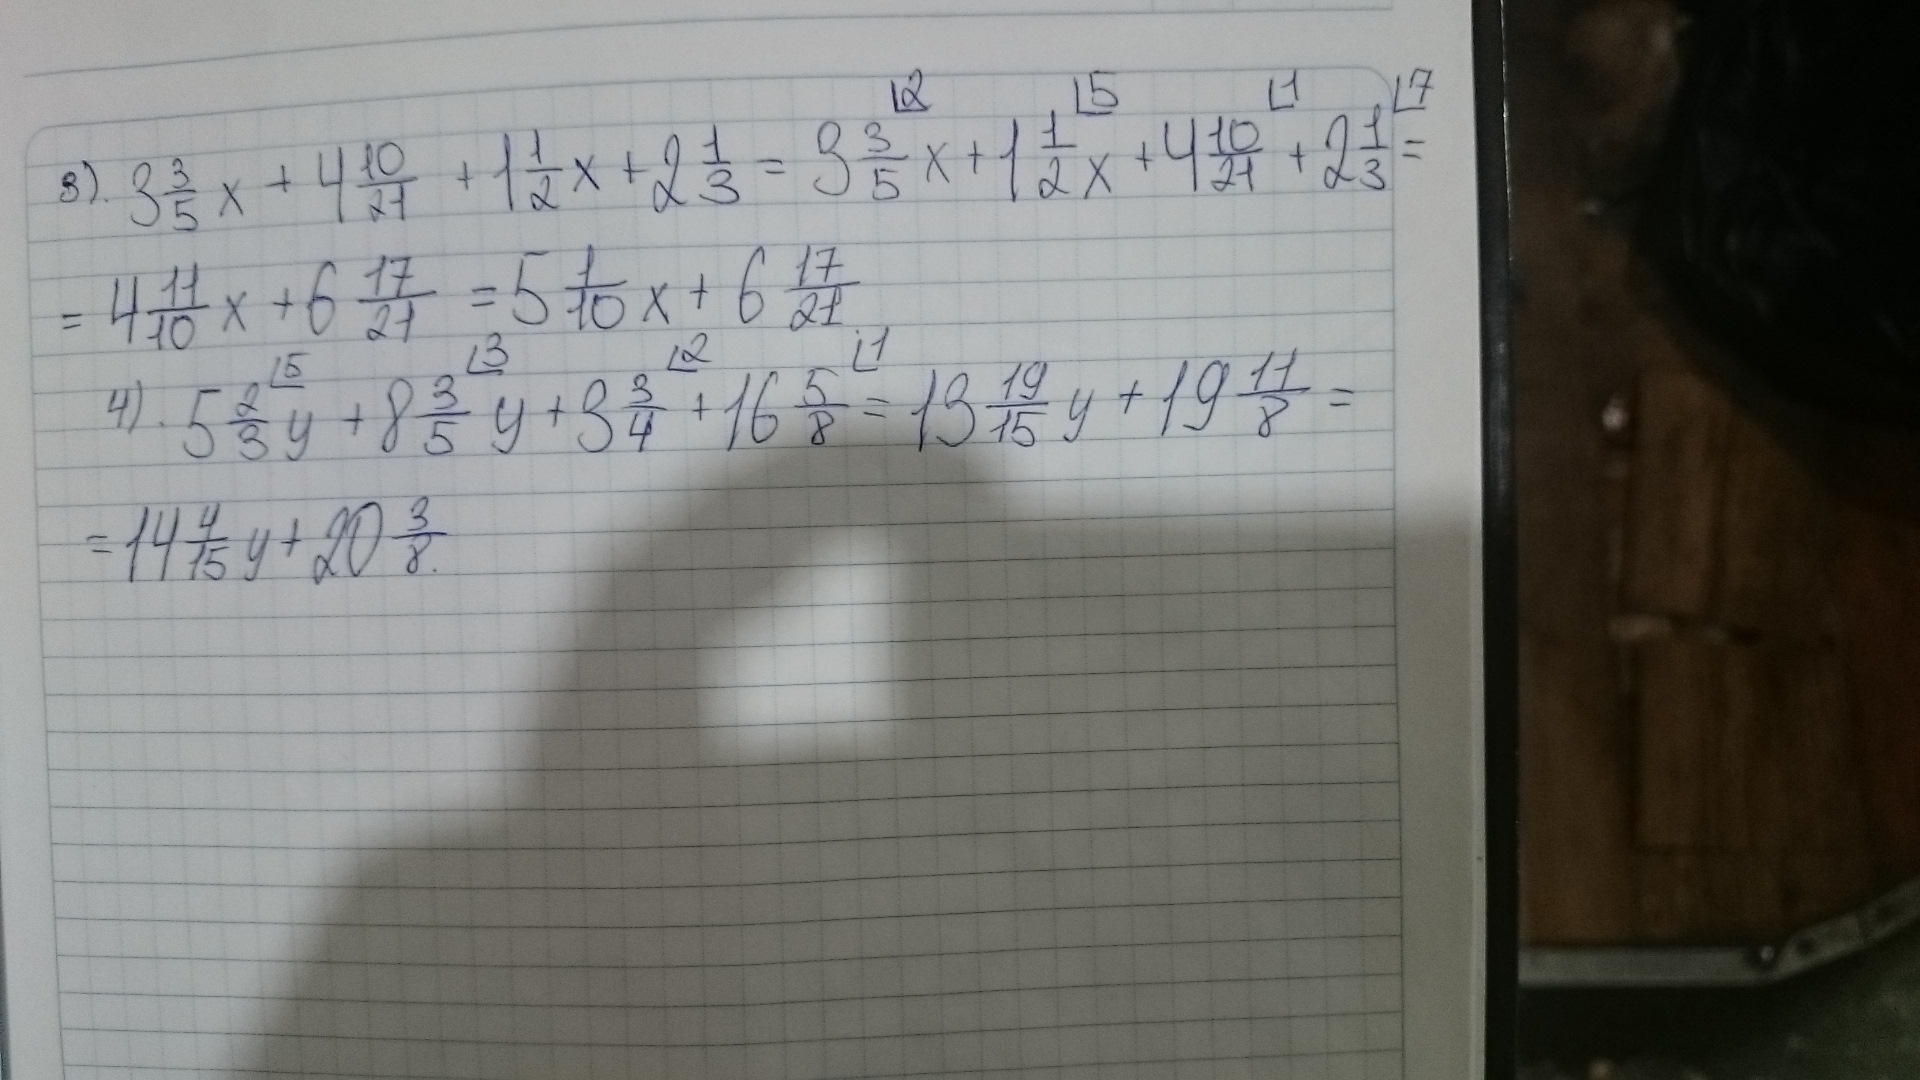 3). 3 3/5 x + 4 10/21 + 1 1/2 x + 2 1/3 = 3 3/5 ⌊2 x + 1 1/2 ⌊5 x + 4 10/21 ⌊1 + 2 1/3 ⌊7 =
= 4 11/10 x + 6 17/21 = 5 1/10 x + 6 17/21
4). 5 2/3 ⌊5 y + 8 3/5 ⌊3 y + 3 3/4 ⌊2 + 16 5/8 ⌊1 = 13 19/15 y + 19 11/8 =
= 14 4/15 y + 20 3/8.